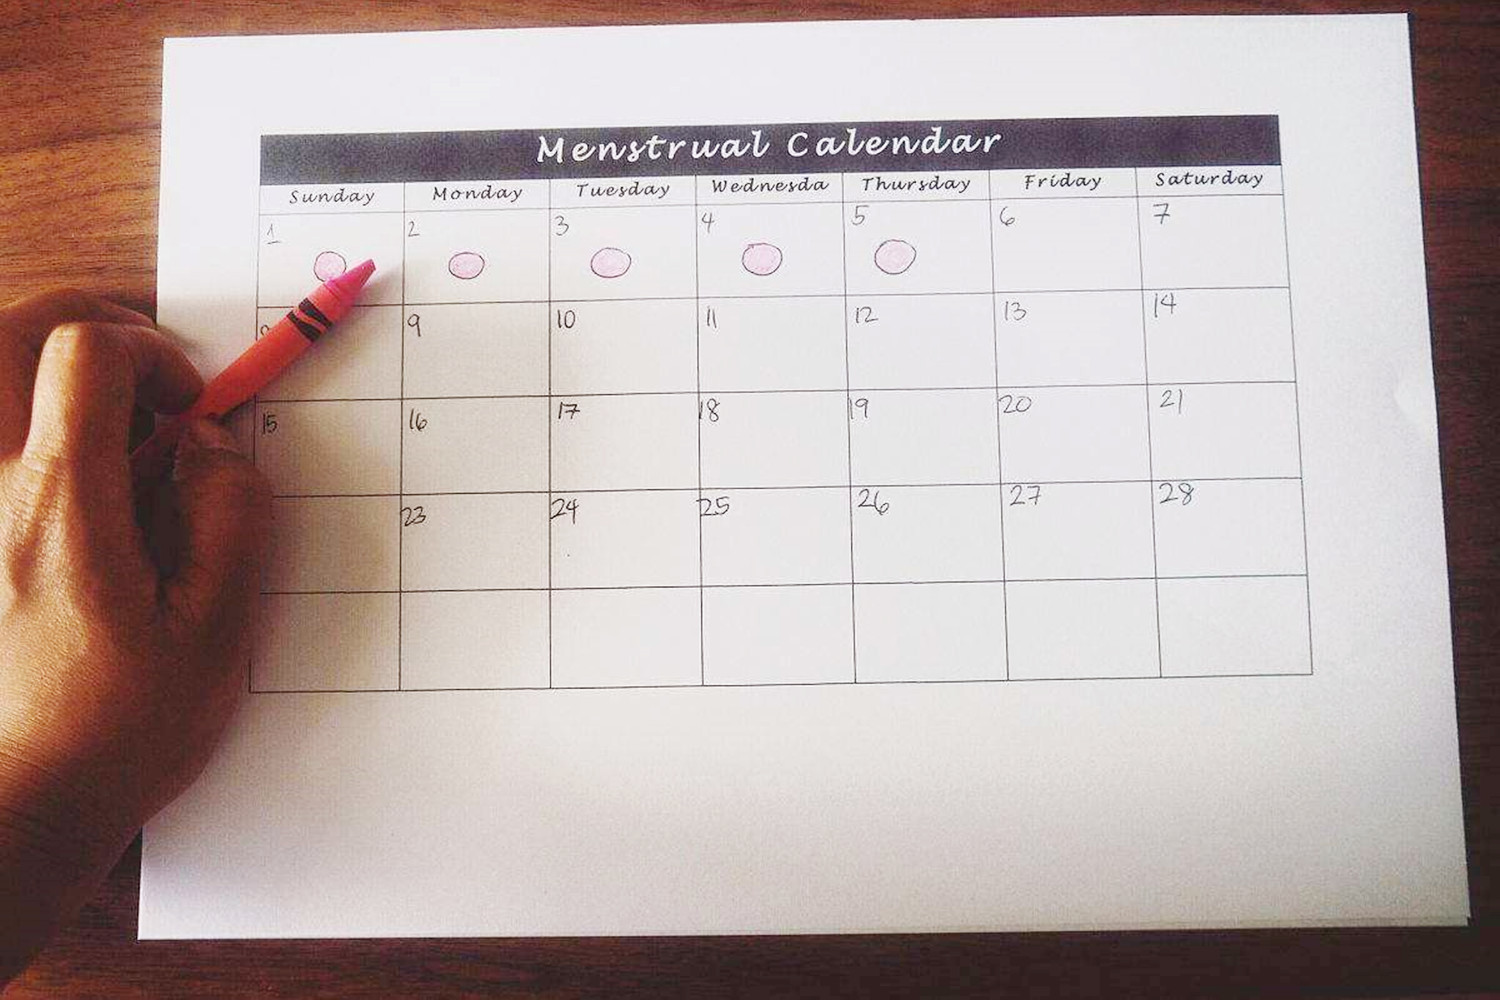 Menstrual Calendar
Sunday Monday Tuesday Wednesda Thursday Friday Saturday
1 2 3 4 5 6 7
9 10 11 12 13 14
15 16 17 18 19 20 21
23 24 25 26 27 28